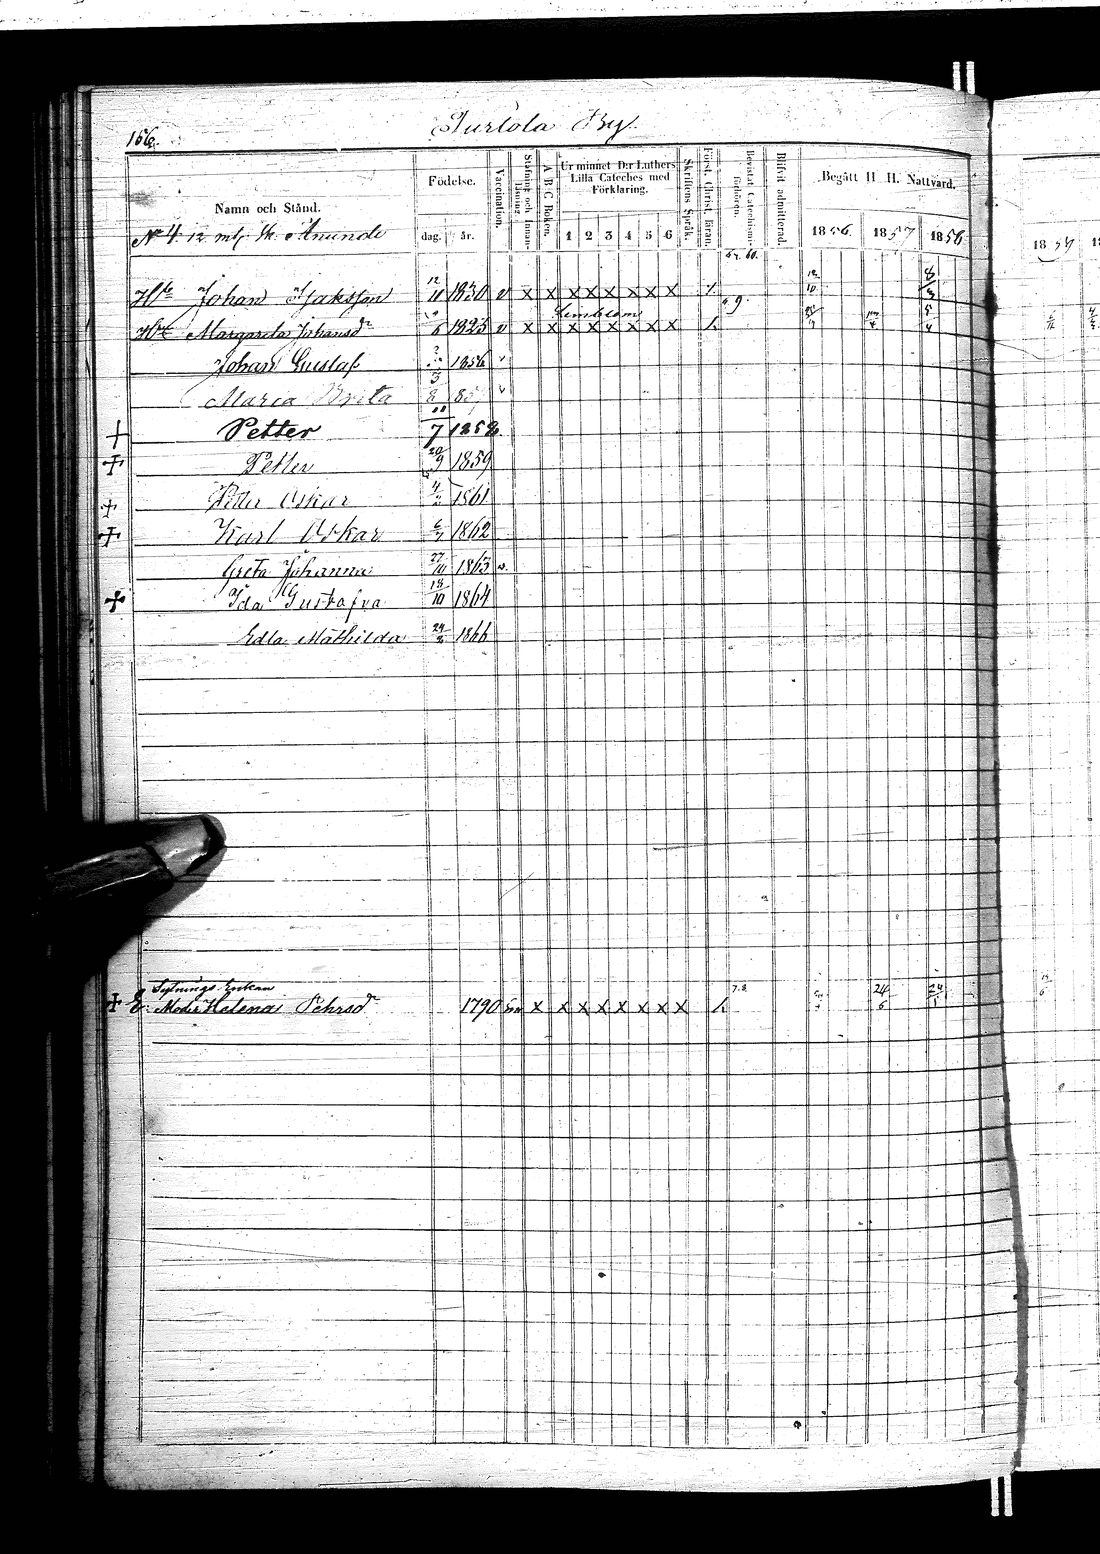 156.
Turtola By.
Namn och Stånd.
Födelse.
dag. år.
Vaccination.
Stafning och Innanläsning.
A B C Boken.
Ur minnet D:r Luthers Lilla Cateches med Förklaring.
1 2 3 4 5 6
Skriftens Språk.
Först. Christ. läran.
Bevistat Catechismiförhören.
Blifvit admitterad.
Begått H. H. Nattvard.
1856. 1857 1858 1859
N:o 4. 12 mtl Sk. Anundi
57. 60.
Johan Isaksson 12/11 1830 v x x x x x x x x
Margareta Johansd:r 6 1825 v x x x x x x x x
Johan Gustaf 1856
Maria Brita 8
+ Petter 11/7 1858
+ Petter 20/9 1859
+ Oskar 1861
+ Karl Oskar 6/7 1862
Greta Johanna 27/10 1863 v.
+ Ida Gustafva 18/10 1864
Edla Mathilda 24/2 1866
Sytnings Enkan
+ E. Moder Helena Pehrsd:r 1790 x x x x x x x x 24/6 24/1